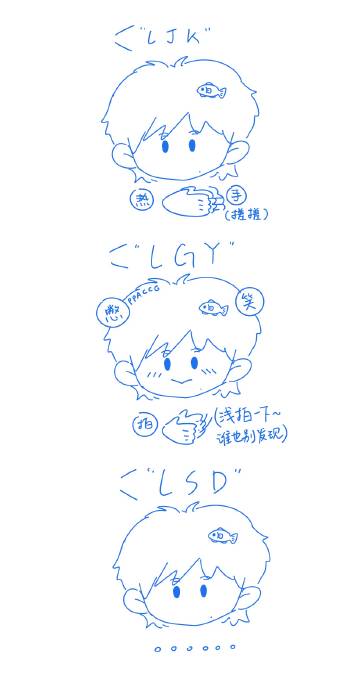 <"LJK"
热 手
(搓搓)
<"LGY"
憋 PPACCG 笑
拍 (浅拍一下~
谁也别发现)
<"LSD"
。。。。。。